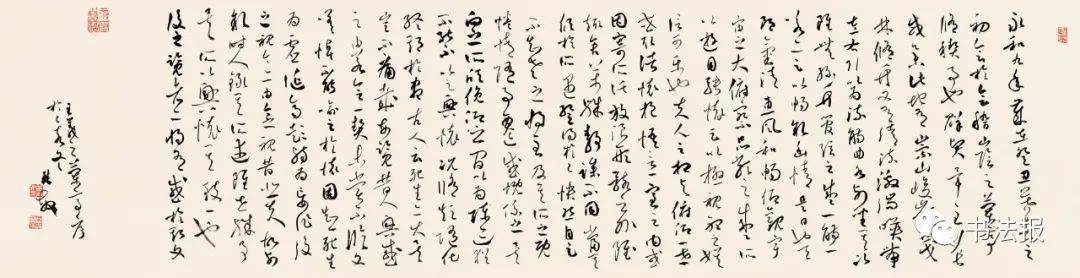 永和九年歲在癸丑暮春之
初會於會稽山陰之蘭亭
脩禊事也群賢畢至少長
咸集此地有崇山峻嶺茂
林脩竹又有清流激湍映帶
左右引以為流觴曲水列坐其次
雖無絲竹管弦之盛一觴
一詠亦足以暢敘幽情是日也天
朗氣清惠風和暢仰觀宇
宙之大俯察品類之盛所
以遊目騁懷足以極視聽之娛
信可樂也夫人之相與俯仰一世
或取諸懷抱悟言一室之內或
因寄所託放浪形骸之外雖
趣舍萬殊靜躁不同當其
欣於所遇暫得於己快然自足
不知老之將至及其所之既
倦情隨事遷感慨係之矣
向之所欣俛仰之間以為陳跡猶
不能不以之興懷況脩短隨化
終期於盡古人云死生亦大矣
豈不痛哉每覽昔人興感
之由若合一契未嘗不臨文
嗟悼不能喻之於懷固知一死生
為虛誕齊彭殤為妄作後
之視今亦由今之視昔悲夫故列
敘時人錄其所述雖世殊事
異所以興懷其致一也
後之覽者亦將有感於斯文
王羲之蘭亭序
书法报